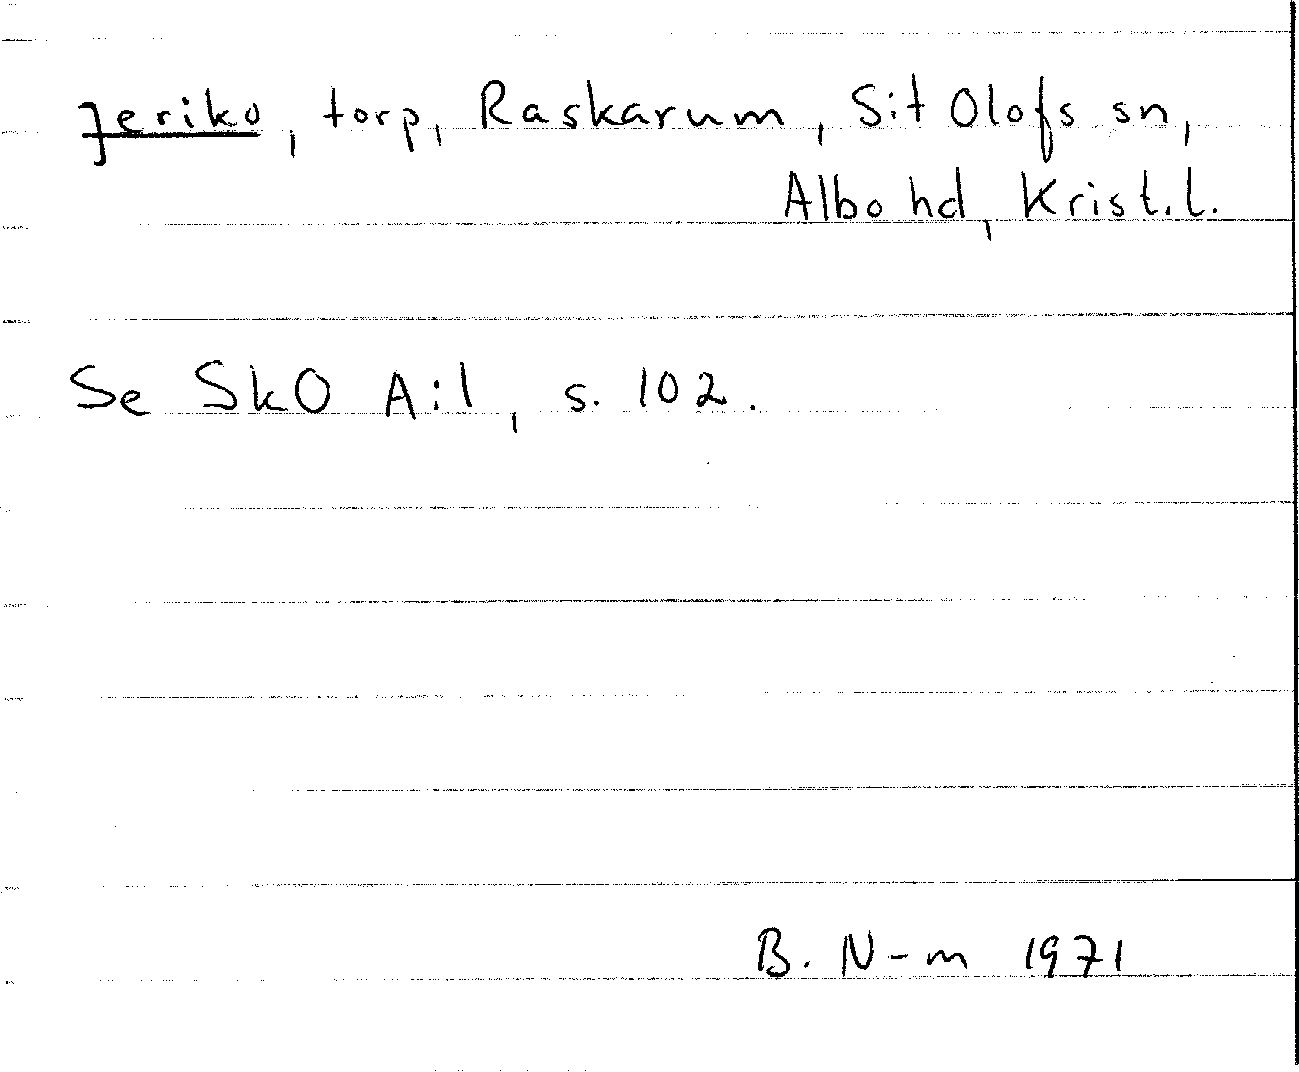 Jeriko, torp, Raskarum, S:t Olofs sn,
Albo hd, Krist.l.
Se SkO A:1, s. 102.
B. N-m 1971